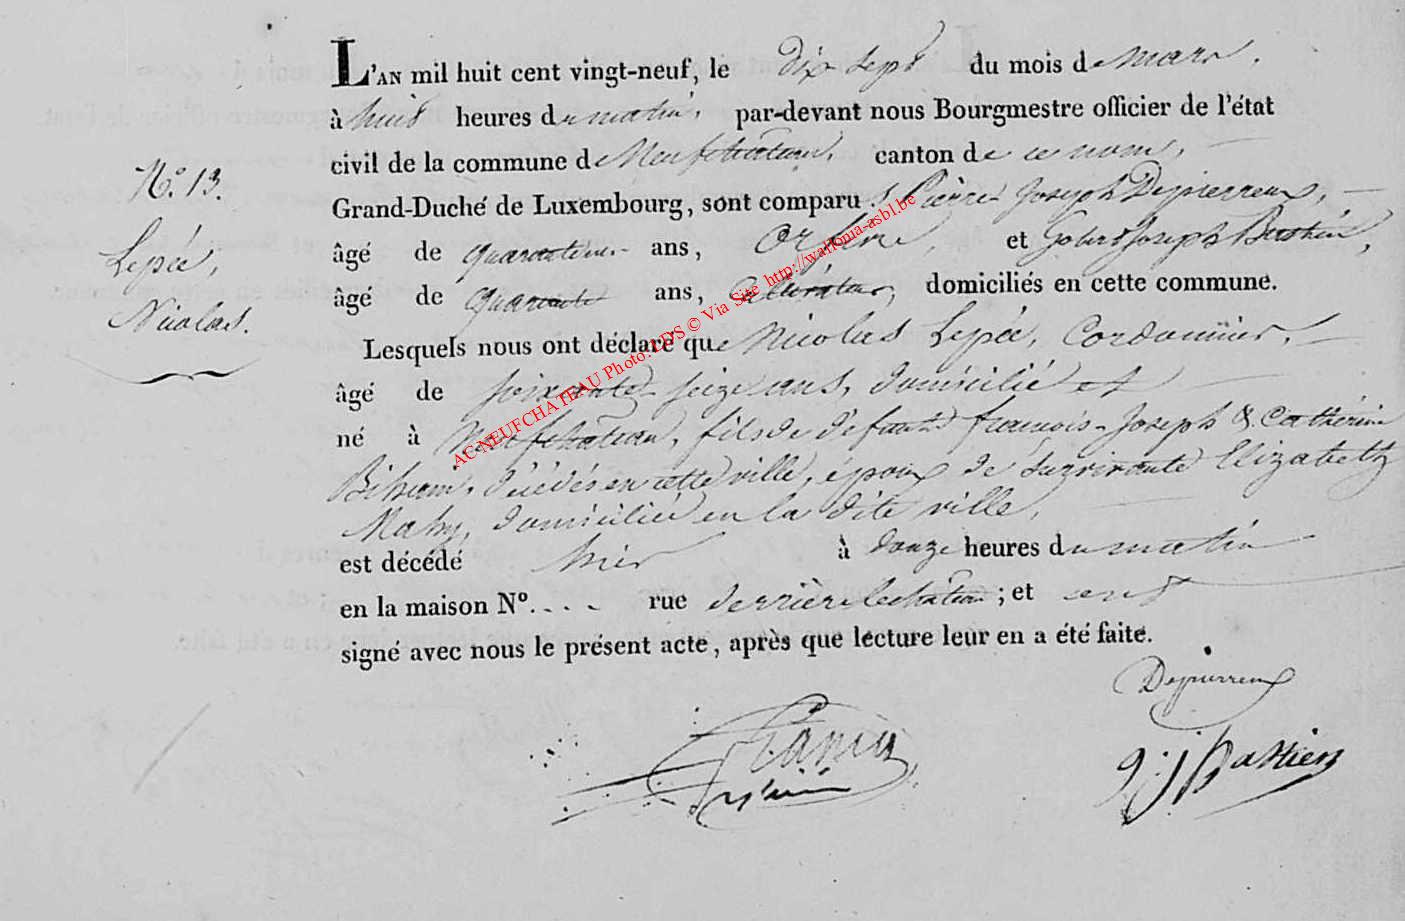 L'AN mil huit cent vingt-neuf, le dix sept du mois de mars,
à huit heures du matin, par-devant nous Bourgmestre officier de l'état
civil de la commune de Neufchateau, canton de ce nom,
Grand-Duché de Luxembourg, sont comparus Pierre Joseph Depierreux,
âgé de quarante ans, orfevre, et Gobert Joseph Bastien,
âgé de quarante ans, Cultivateur, domiciliés en cette commune.
Lesquels nous ont déclaré que Nicolas Lepée, Cordonnier,
âgé de soixante seize ans, domicilié et
né à Neufchateau, fils de défunts francois-Joseph & Catherine
Bihain, décédés en cette ville, époux de survivante Elizabeth
Mahy, domiciliée en la dite ville,
est décédé hier à douze heures du matin
en la maison N°. ... rue derrière le chateau ; et ont
signé avec nous le présent acte, après que lecture leur en a été faite.
N.° 13.
Lepée,
Nicolas.
Depierreux
g j Bastien
AC-NEUFCHATEAU Photo: LDS © Via Site http://wallonia-asbl.be